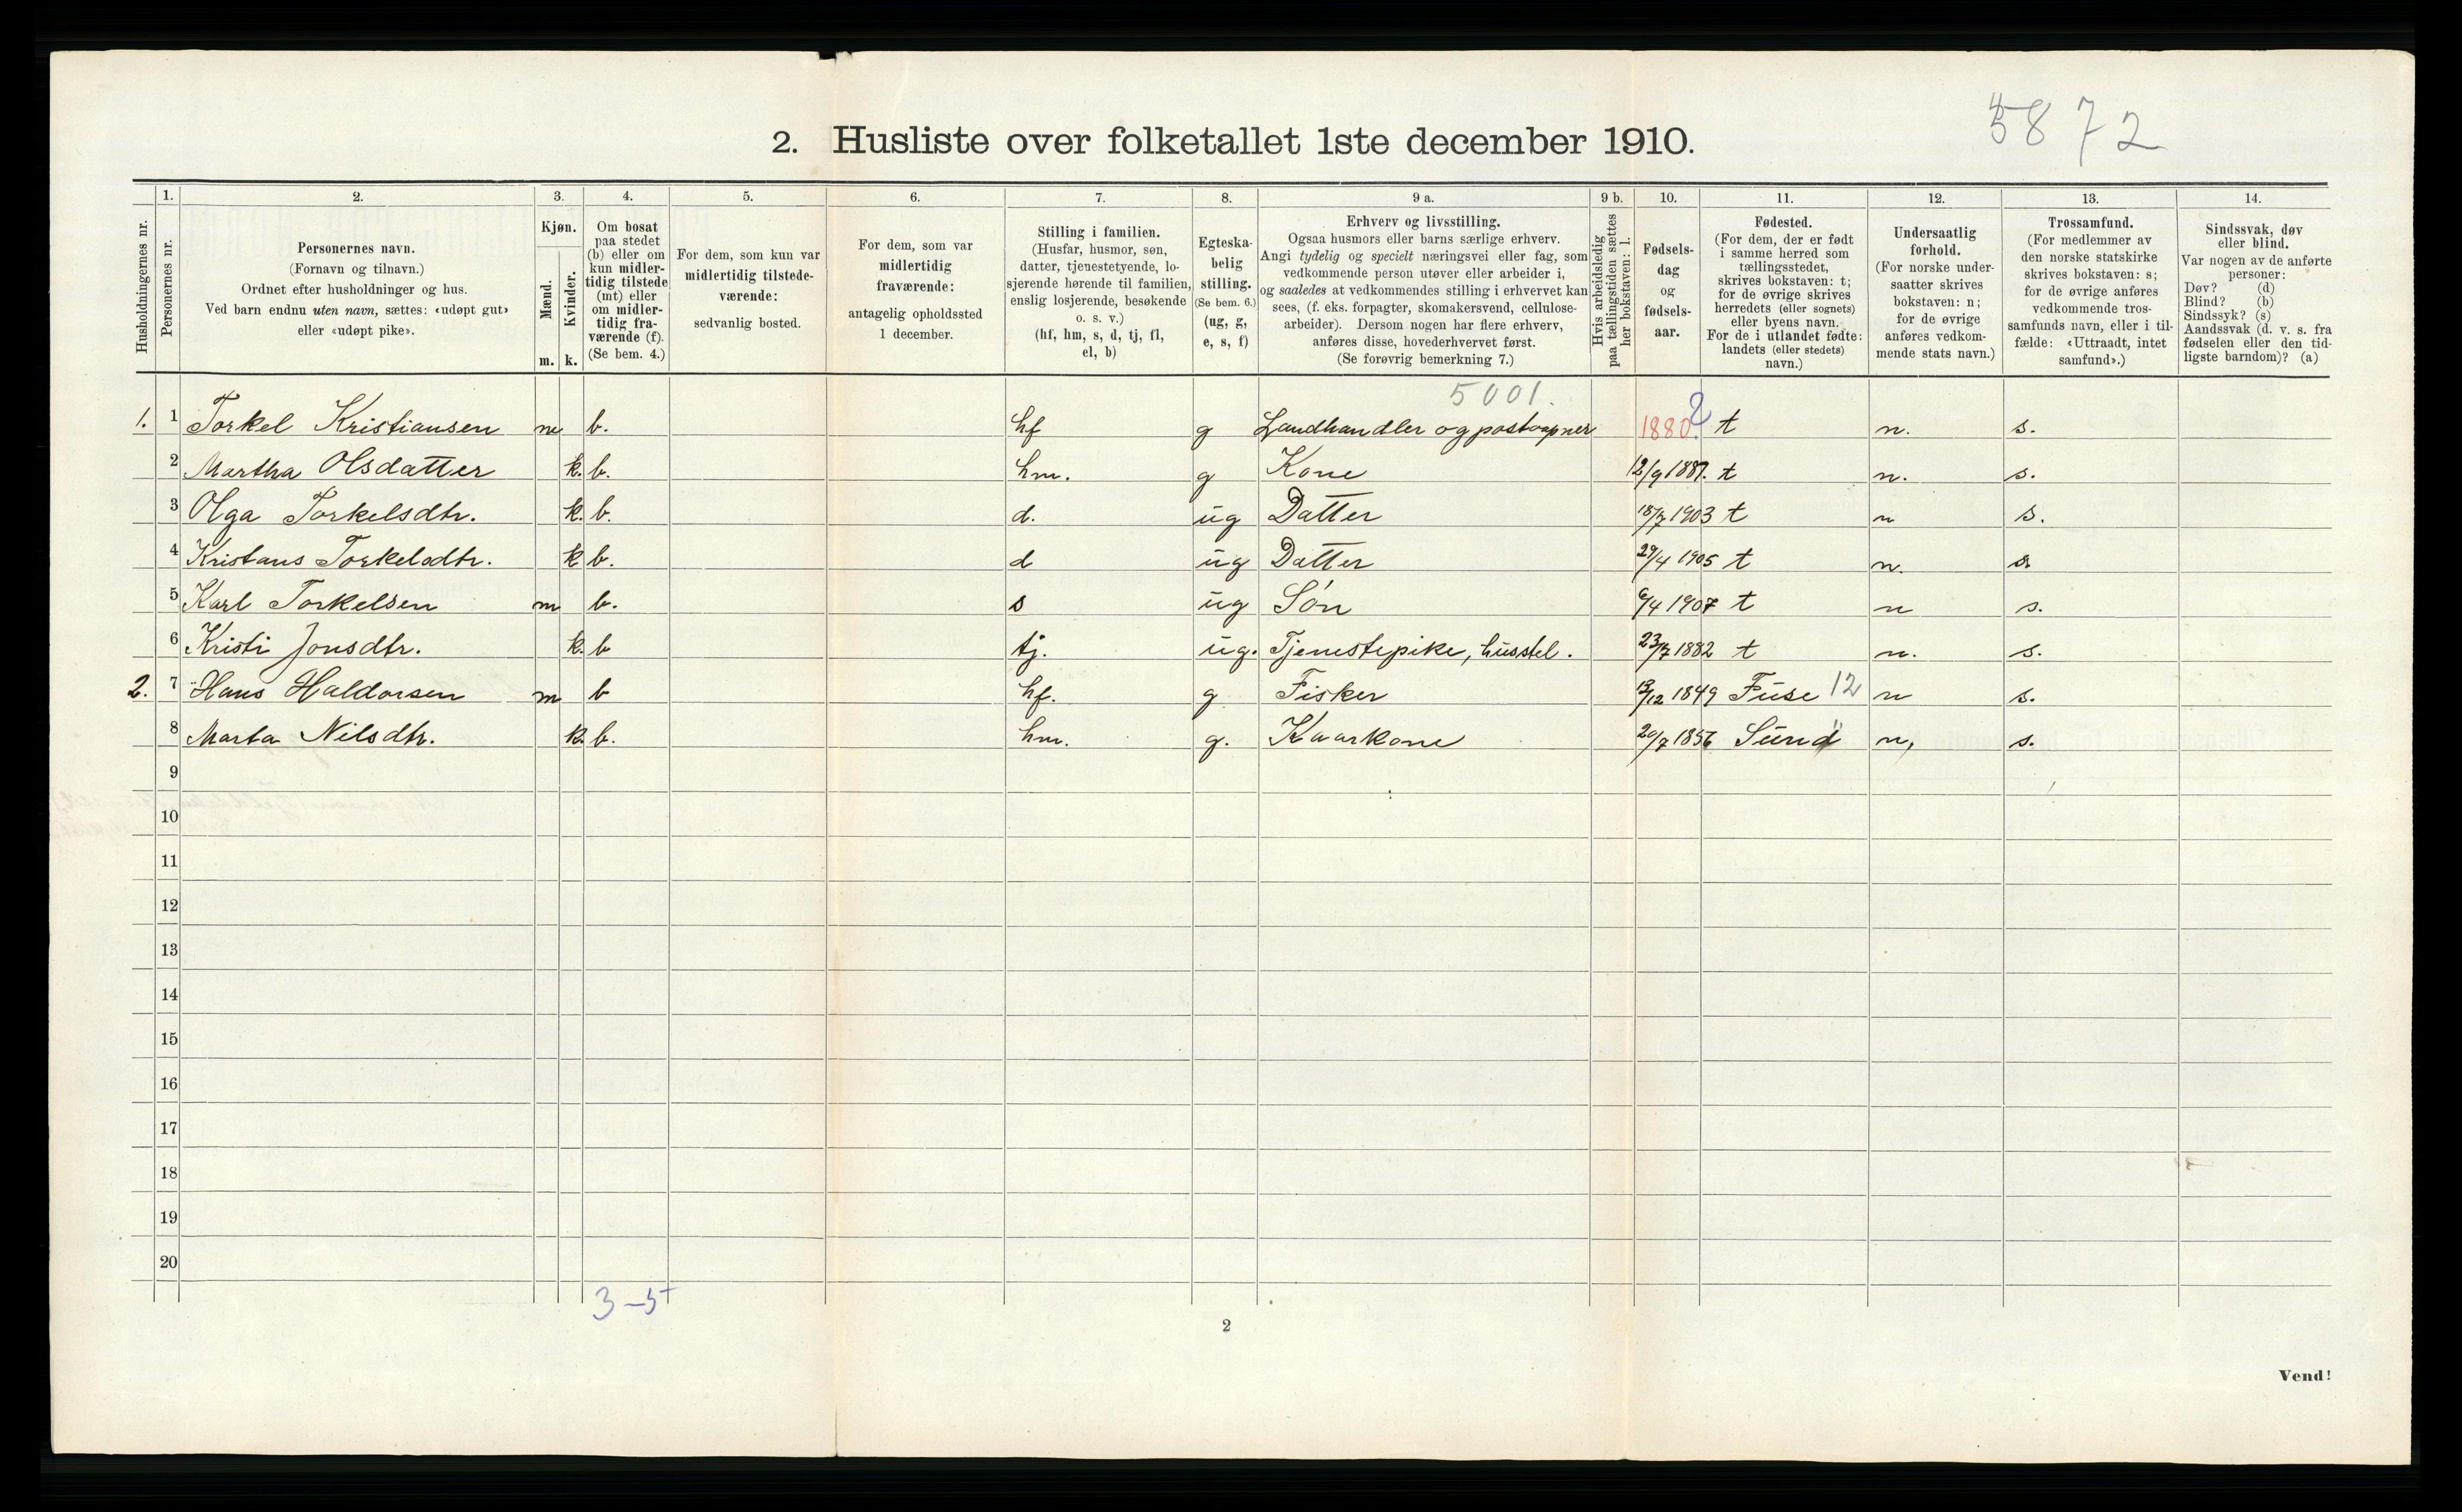 5872
2. Husliste over folketallet 1ste december 1910.
Husholdningernes nr.
1. Personernes nr.
2. Personernes navn. (Fornavn og tilnavn.) Ordnet efter husholdninger og hus. Ved barn endnu uten navn, sættes: «udøpt gut» eller «udøpt pike».
3. Kjøn. Mænd. m. Kvinder. k.
4. Om bosat paa stedet (b) eller om kun midlertidig tilstede (mt) eller om midlertidig fraværende (f). (Se bem. 4.)
5. For dem, som kun var midlertidig tilstedeværende: sedvanlig bosted.
6. For dem, som var midlertidig fraværende: antagelig opholdssted 1 december.
7. Stilling i familien. (Husfar, husmor, søn, datter, tjenestetyende, losjerende hørende til familien, enslig losjerende, besøkende o. s. v.) (hf, hm, s, d, tj, fl, el, b)
8. Egteskabelig stilling. (Se bem. 6.) (ug, g, e, s, f)
9 a. Erhverv og livsstilling. Ogsaa husmors eller barns særlige erhverv. Angi tydelig og specielt næringsvei eller fag, som vedkommende person utøver eller arbeider i, og saaledes at vedkommendes stilling i erhvervet kan sees, (f. eks. forpagter, skomakersvend, cellulose-arbeider). Dersom nogen har flere erhverv, anføres disse, hovederhvervet først. (Se forøvrig bemerkning 7.)
9 b. Hvis arbeidsledig paa tællingstiden sættes her bokstaven: l.
10. Fødselsdag og fødselsaar.
11. Fødested. (For dem, der er født i samme herred som tællingsstedet, skrives bokstaven: t; for de øvrige skrives herredets (eller sognets) eller byens navn. For de i utlandet fødte: landets (eller stedets) navn.)
12. Undersaatlig forhold. (For norske undersaatter skrives bokstaven: n; for de øvrige anføres vedkommende stats navn.)
13. Trossamfund. (For medlemmer av den norske statskirke skrives bokstaven: s; for de øvrige anføres vedkommende trossamfunds navn, eller i tilfælde: «Uttraadt, intet samfund».)
14. Sindssvak, døv eller blind. Var nogen av de anførte personer: Døv? (d) Blind? (b) Sindssyk? (s) Aandssvak (d. v. s. fra fødselen eller den tidligste barndom)? (a)
5001.
1. 1 Torkel Kristiansen m b. hf g Landhandler og postaapner 1880. 2 t n. s.
2 Martha Olsdatter k. b. hm. g Kone 12/9 1887. t n. s.
3 Olga Torkelsdtr. k. b. d. ug Datter 18/7 1903 t n s.
4 Kristans Torkelsdtr. k b. d ug Datter 29/4 1905 t n. s.
5 Karl Torkelsen m b. s ug Søn 6/4 1907 t n s.
6 Kristi Jonsdtr. k. b tj. ug. Tjenestepike, husstel. 23/7 1882 t n. s.
2. 7 Hans Haldorsen m b hf. g Fisker 13/12 1849 Fuse 12 n s.
8 Marta Nilsdtr. k. b. hm. g. Kaarkone 20/7 1856 Sund n, s.
9
10
11
12
13
14
15
16
17
18
19
20
3-5
2
Vend!